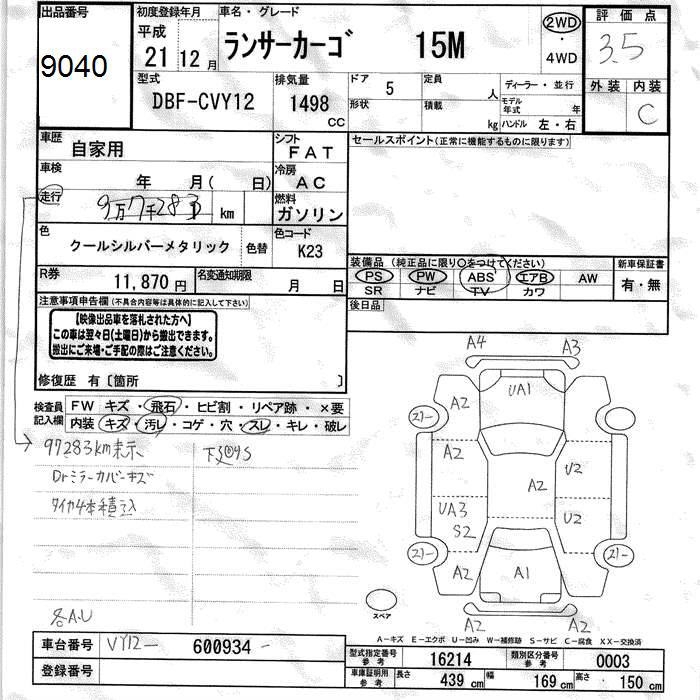 出品番号
9040
初度登録年月
平成
21 12 月
車名・グレード
ランサーカーゴ 15M
2WD
・
4WD
評価点
3.5
外装 内装
C
型式
DBF-CVY12
排気量
1498
CC
ドア 5
形状
定員
人
積載
kg
ディーラー・並行
モデル年式 年
ハンドル 左・右
車歴
自家用
シフト
FAT
車検
年 月( 日)
冷房
AC
走行
9万7千283 km
燃料
ガソリン
色
クールシルバーメタリック
色替
色コード
K23
R券
11,870 円
名変通知期限
月 日
セールスポイント(正常に機能するものに限ります)
装備品 (純正品に限り○をつけてください)
PS PW ABS エアB AW
SR ナビ TV カワ
新車保証書
有・無
後日品
注意事項申告欄(不具合内容等は具体的に記入して下さい)
【映像出品車を落札された方へ】
この車は翌々日(土曜日)から搬出できます。
搬出にご来場・ご手配の際はご注意ください。
修復歴 有〔箇所 〕
検査員記入欄
FW キズ・飛石・ヒビ割・リペア跡・×要
内装 キズ・汚レ・コゲ・穴・スレ・キレ・破レ
97283km表示
Drミラーカバーキズ
タイヤ4本積込
下廻サS
各A.U
A4 A3
UA1
A2
A2
UA3
S2
A2
A2
U2
U2
A1
A2 A2
スペア
A-キズ E-エクボ U-凹み W-補修跡 S-サビ C-腐食 XX-交換済
車台番号 VY12- 600934-
登録番号
型式指定番号 参考 16214
類別区分番号 参考 0003
車庫証明用 参考 長さ 439 cm 幅 169 cm 高さ 150 cm